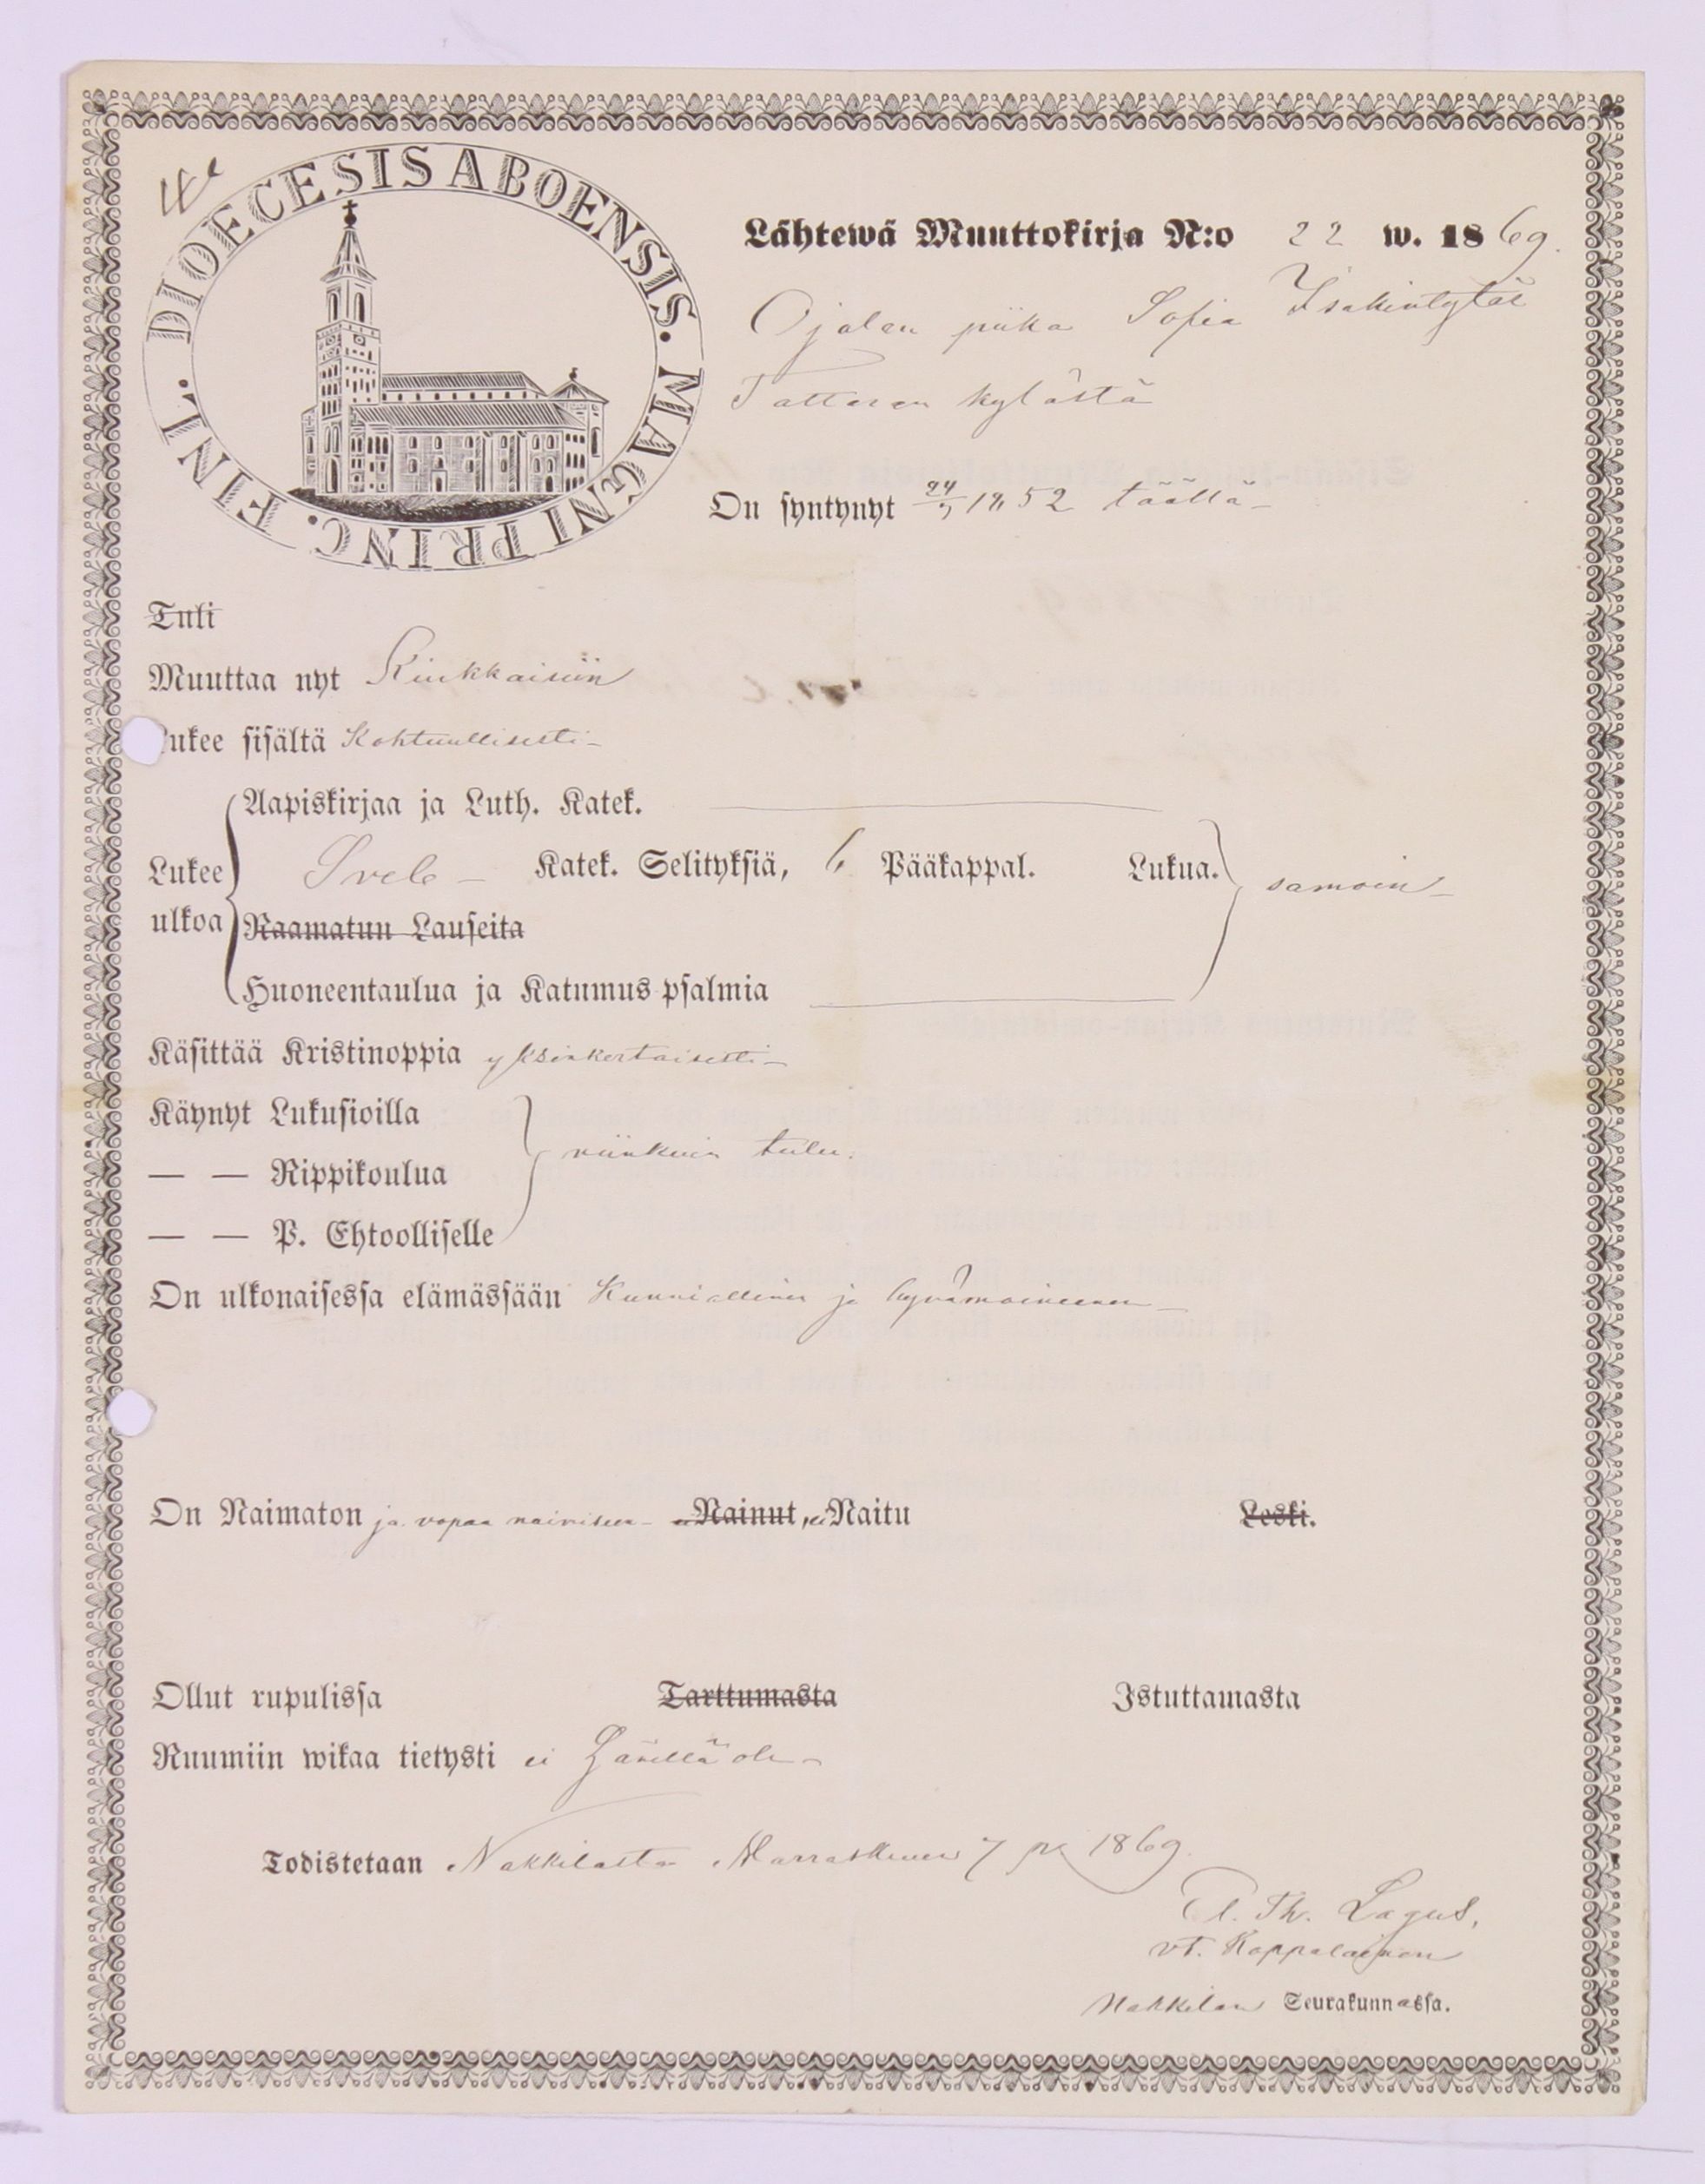 DIOECESIS ABOENSIS. MAGNI PRINC. FINL.
Lähtewä Muuttokirja N:o 22 w. 1869.
Ojalan piika Sofia Isakintytär
Tattaran kylästä
On syntynyt 24/5 1852 täällä
Tuli
Muuttaa nyt Kiukkaisiin
Lukee sisältä Kohtuullisesti
Aapiskirjaa ja Luth. Katek.
Lukee ulkoa Sveb Katek. Selityksiä, 6 Pääkappal. Lukua. samoin
Raamatun Lauseita
Huoneentaulua ja Katumus psalmia
Käsittää Kristinoppia yksinkertaisesti
Käynyt Lukusioilla
— — Rippikoulua niinkuin tulee.
— — P. Ehtoolliselle
On ulkonaisessa elämässään Kunniallinen ja hyvämaineinen
On Naimaton ja vapaa naimiseen Nainut, ei Naitu Leski.
Ollut rupulissa Tarttumasta Istuttamasta
Ruumiin wikaa tietysti ei hänellä ole
Todistetaan Nakkilasta Marraskuun 7 p. 1869.
Th. Lagus,
vt. Kappalainen
Nakkilan Seurakunnassa.